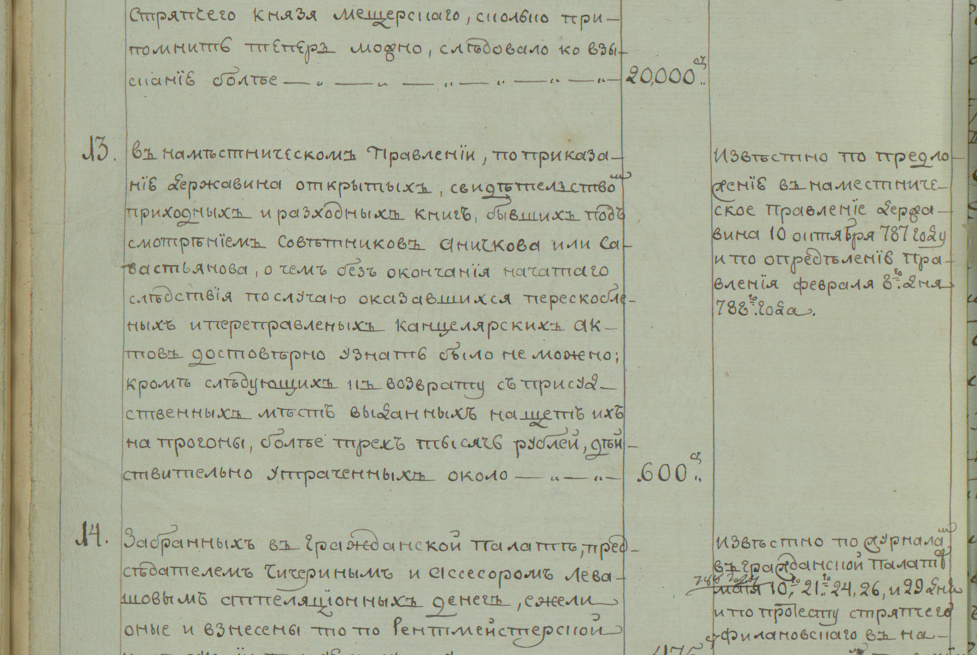 Стряпчего князя Мещерскаго, сколько при-
помнить теперь можно, слѣдовало ко взы-
сканію болѣе — „ — „ — „ — „ — „ — 20,000
13. Въ намѣстническомъ Правленіи, по приказа-
нію Державина открытыхъ, свидѣтельство
приходныхъ и разходныхъ книгъ, бывшихъ подъ
смотрѣніемъ Совѣтниковъ Аничкова или Са-
вастьянова, о чемъ безъ окончанія начатаго
слѣдствія по случаю оказавшихся перескобле-
ныхъ и переправленыхъ Канцелярскихъ ак-
товъ достовѣрно узнать было не можно;
кромѣ слѣдующихъ къ возврату съ присуд-
ственныхъ мѣстъ выданныхъ на щетъ ихъ
на прогоны, болѣе трехъ тысячь рублей, дѣй-
ствительно утраченныхъ около — „ — „ — 600
Извѣстно по предло-
женію въ наместниче-
ское Правленіе Держа-
вина 10 октября 787 году
и по опредѣленію Пра-
вленія февраля 8го дня
788го года.
14. Забранныхъ въ Гражданской Палатѣ, пред-
сѣдателемъ Чичеринымъ и Ассесоромъ Лева-
шовымъ аппеляціонныхъ денегъ, ежели
оные и взнесены то по Рентмейстерской
Извѣстно по журнала
въ Гражданской Палатѣ
788 году
маія 10го 21го 24, 26, и 29 дня
и по протесту стряпчего
Филановскаго въ на-